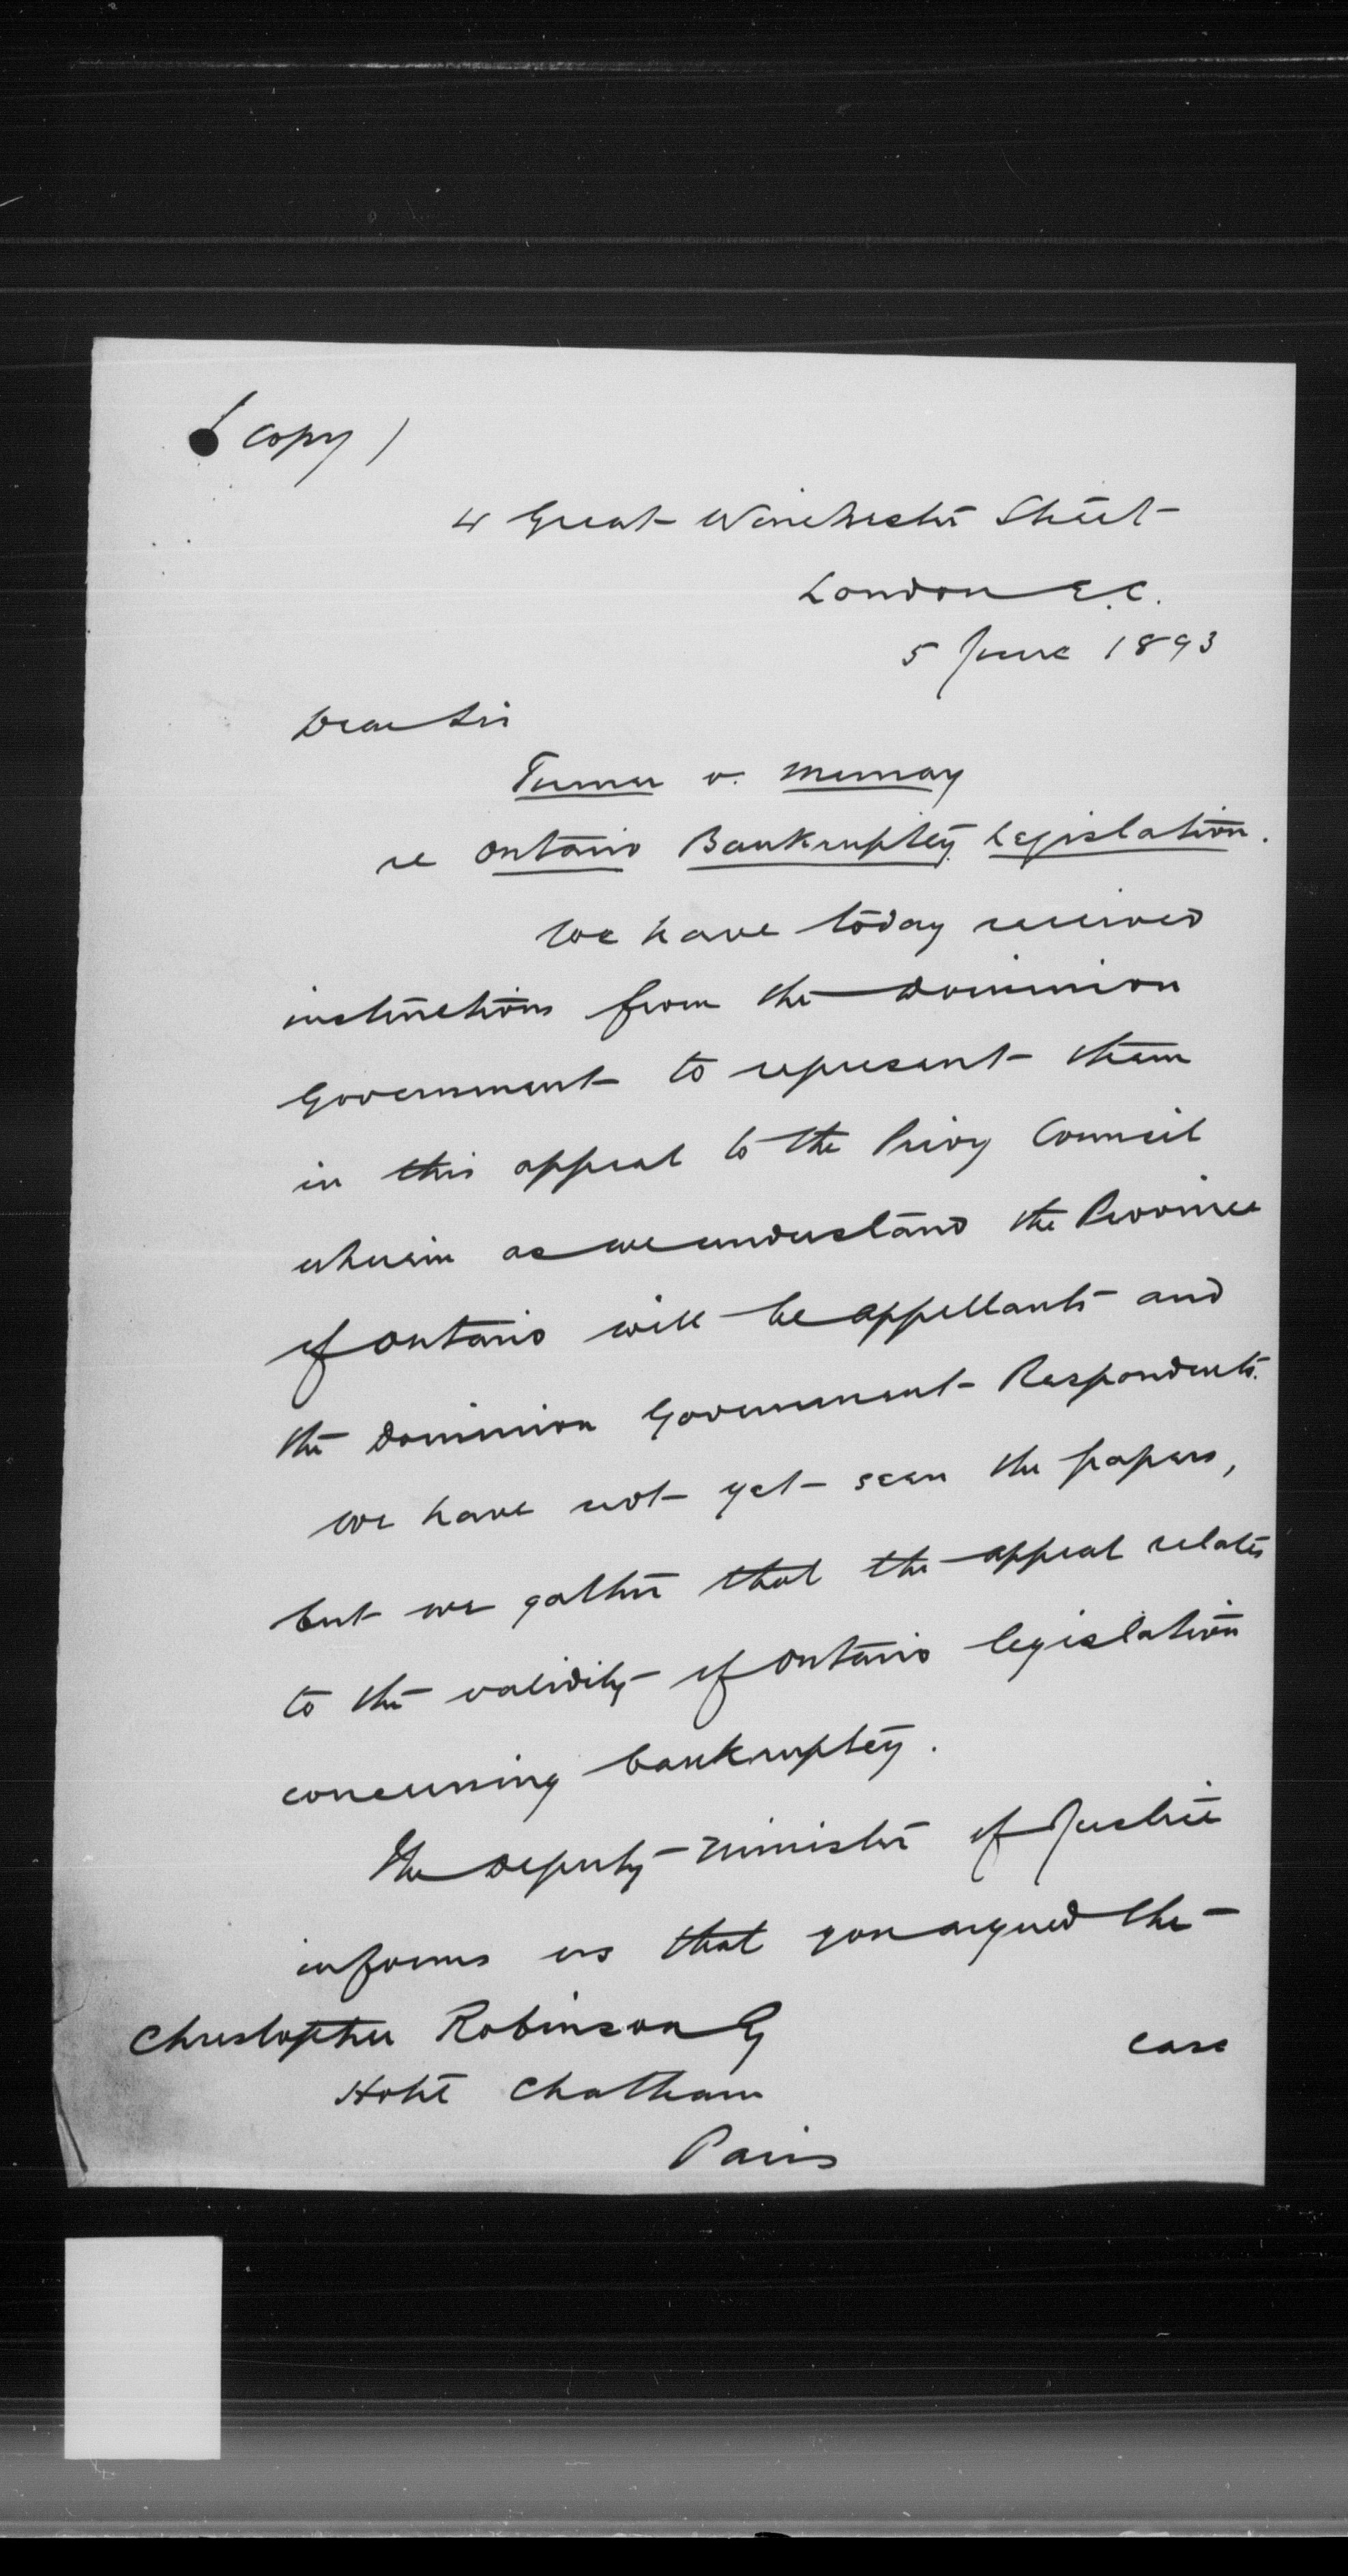 (Copy)
4 Great Winchester Street
London E.C.
5 June 1893
Dear Sir
Turner v. Murray
re Ontario Bankruptcy Legislation.
We have today received
instructions from the Dominion
Government to represent them
in this appeal to the Privy Council
wherein as we understand the Province
of Ontario will be appellants and
the Dominion Government Respondents.
We have not yet seen the papers,
but we gather that the appeal relates
to the validity of Ontario legislation
concerning bankruptcy.
The Deputy Minister of Justice
informs us that you argued the
case
Christopher Robinson Q
Hotel Chatham
Paris